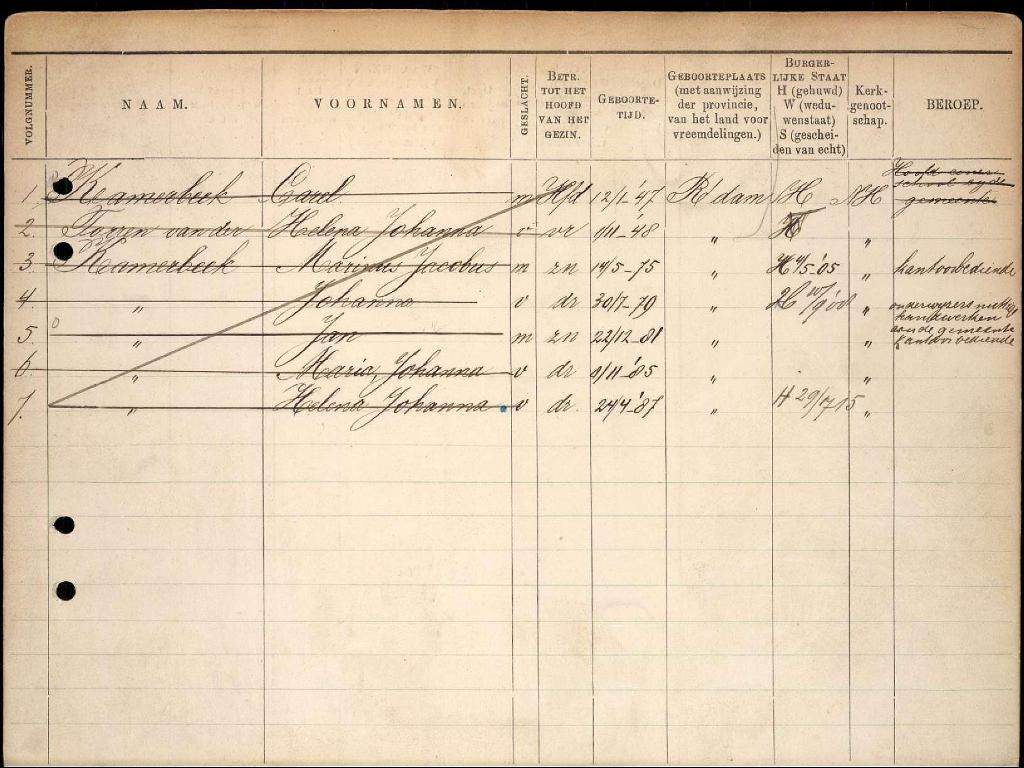 VOLGNUMMER.
NAAM.
VOORNAMEN.
GESLACHT.
BETR. TOT HET HOOFD VAN HET GEZIN.
GEBOORTE-TIJD.
GEBOORTEPLAATS (met aanwijzing der provincie, van het land voor vreemdelingen.)
BURGER-LIJKE STAAT H (gehuwd) W (wedu-wenstaat) S (geschei-den van echt)
Kerk-genoot-schap.
BEROEP.
1 Kramerbeek Carel m Hfd 12/1-'47 R'dam H NH Hoofd school gemeente
2. Toorn van der Helena Johanna v vr 1/11-'48 " "
3 Kramerbeek Marinus Jacobus m zn 14/5-75 " H 4/5-'05 " kantoorbediende
4 " Johanna v dr 30/7-79 " " onderwijzeres nuttige handwerken
5 " Jan m zn 22/12-81 " " kantoorbediende
6 " Maria, Johanna v dr 9/11-'85 " "
7. " Helena Johanna v dr 24/4-'87 " H 29/7 15 "